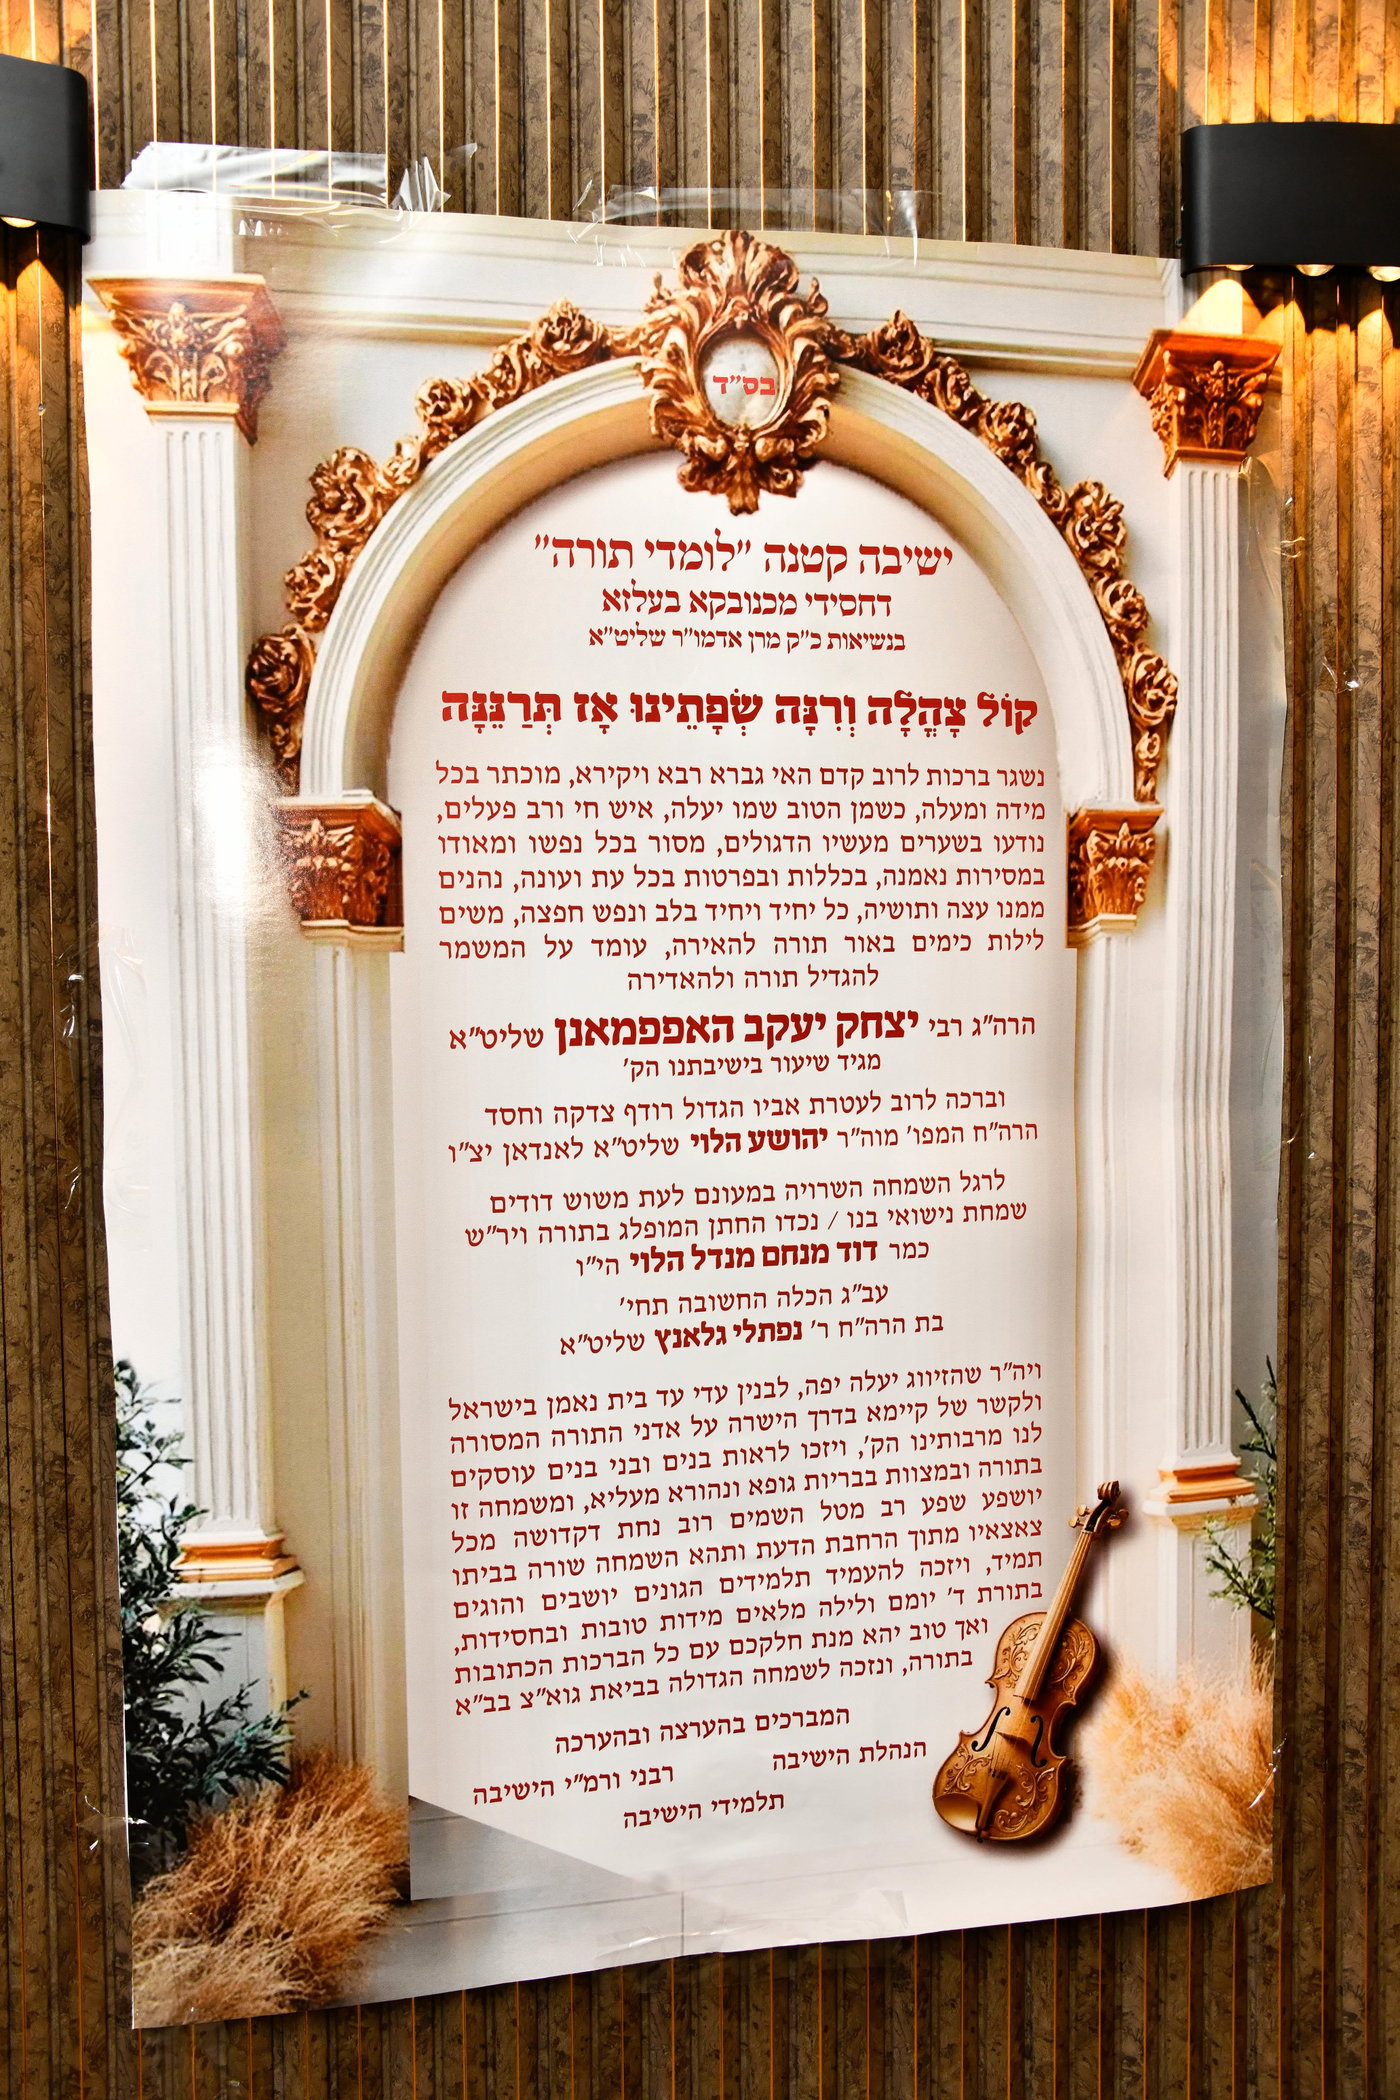 בס״ד
ישיבה קטנה ״לומדי תורה״
דחסידי מכנובקא בעלזא
בנשיאות כ״ק מרן אדמו״ר שליט״א
קוֹל צָהֳלָה וְרִנָּה שְׂפָתֵינוּ אָז תְּרַנֵּנָּה
נשגר ברכות לרוב קדם האי גברא רבא ויקירא, מוכתר בכל
מידה ומעלה, כשמן הטוב שמו יעלה, איש חי ורב פעלים,
נודעו בשערים מעשיו הדגולים, מסור בכל נפשו ומאודו
במסירות נאמנה, בכללות ובפרטות בכל עת ועונה, נהנים
ממנו עצה ותושיה, כל יחיד ויחיד בלב ונפש חפצה, משים
לילות כימים באור תורה להאירה, עומד על המשמר
להגדיל תורה ולהאדירה
הרה״ג רבי יצחק יעקב האפפמאנן שליט״א
מגיד שיעור בישיבתנו הק׳
וברכה לרוב לעטרת אביו הגדול רודף צדקה וחסד
הרה״ח המפו׳ מוה״ר יהושע הלוי שליט״א לאנדאן יצ״ו
לרגל השמחה השרויה במעונם לעת משוש דודים
שמחת נישואי בנו / נכדו החתן המופלג בתורה ויר״ש
כמר דוד מנחם מנדל הלוי הי״ו
עב״ג הכלה החשובה תחי׳
בת הרה״ח ר׳ נפתלי גלאנץ שליט״א
ויה״ר שהזיווג יעלה יפה, לבנין עדי עד בית נאמן בישראל
ולקשר של קיימא בדרך הישרה על אדני התורה המסורה
לנו מרבותינו הק׳, ויזכו לראות בנים ובני בנים עוסקים
בתורה ובמצוות בבריות גופא ונהורא מעליא, ומשמחה זו
יושפע שפע רב מטל השמים רוב נחת דקדושה מכל
צאצאיו מתוך הרחבת הדעת ותהא השמחה שורה בביתו
תמיד, ויזכה להעמיד תלמידים הגונים יושבים והוגים
בתורת ד׳ יומם ולילה מלאים מידות טובות ובחסידות,
ואך טוב יהא מנת חלקכם עם כל הברכות הכתובות
בתורה, ונזכה לשמחה הגדולה בביאת גוא״צ בב״א
המברכים בהערצה ובהערכה
הנהלת הישיבה רבני ורמ״י הישיבה
תלמידי הישיבה